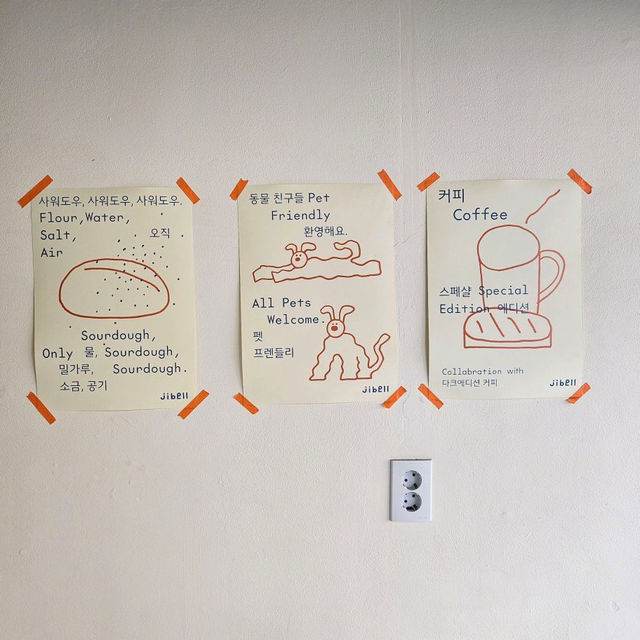 사워도우, 사워도우, 사워도우.
Flour, Water,
Salt, 오직
Air
Sourdough,
Only 물, Sourdough,
밀가루, Sourdough.
소금, 공기
jibEll
동물 친구들 Pet
Friendly
환영해요.
All Pets
Welcome.
펫
프렌들리
jibEll
커피
Coffee
스페샬 Special
Edition 에디션
Collabration with
다크에디션 커피
jibEll